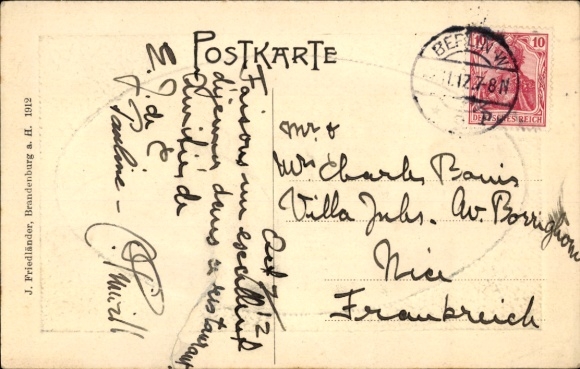 POSTKARTE
BERLIN W
.11.12.7-8N
10
DEUTSCHES REICH
J. Friedländer, Brandenburg a. H. 1912
Oct 12
Faisons un excellent
déjeuner dans ce restaurant
Amitiés de
E. J. de
Pauline
Mr &
Mrs Charles
Villa Av.
Nice
Frankreich